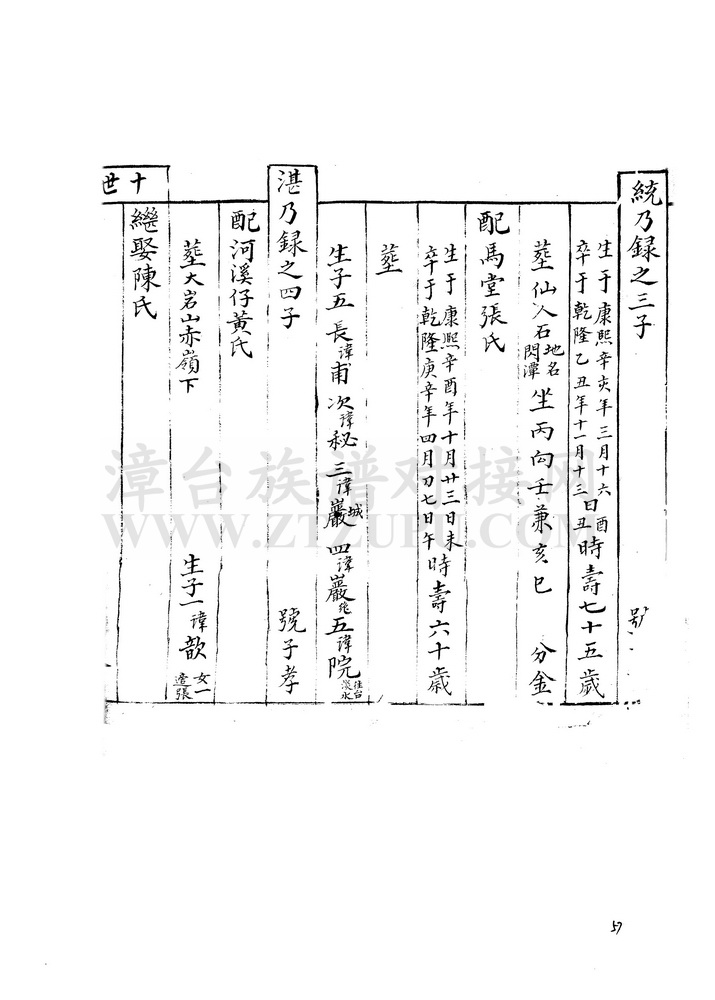 統乃録之三子 號
生于康熙辛亥年三月十六日酉
卒于乾隆乙丑年十一月十三日丑時壽七十五歲
塟仙人石地名閃潭坐丙向壬兼亥巳 分金
配馬堂張氏
生于康熙辛酉年十月廿三日未
卒于乾隆庚辛年四月初七日午時壽六十歲
塟
生子五長諱甫次諱秘三諱巖城四諱巖五諱院往台淡水
湛乃録之四子 號子孝
配河溪仔黃氏
塟大岩山赤嶺下 生子一諱歆女一適張
繼娶陳氏
十世
漳台族谱对接网
WWW.ZTZUPU.COM
57